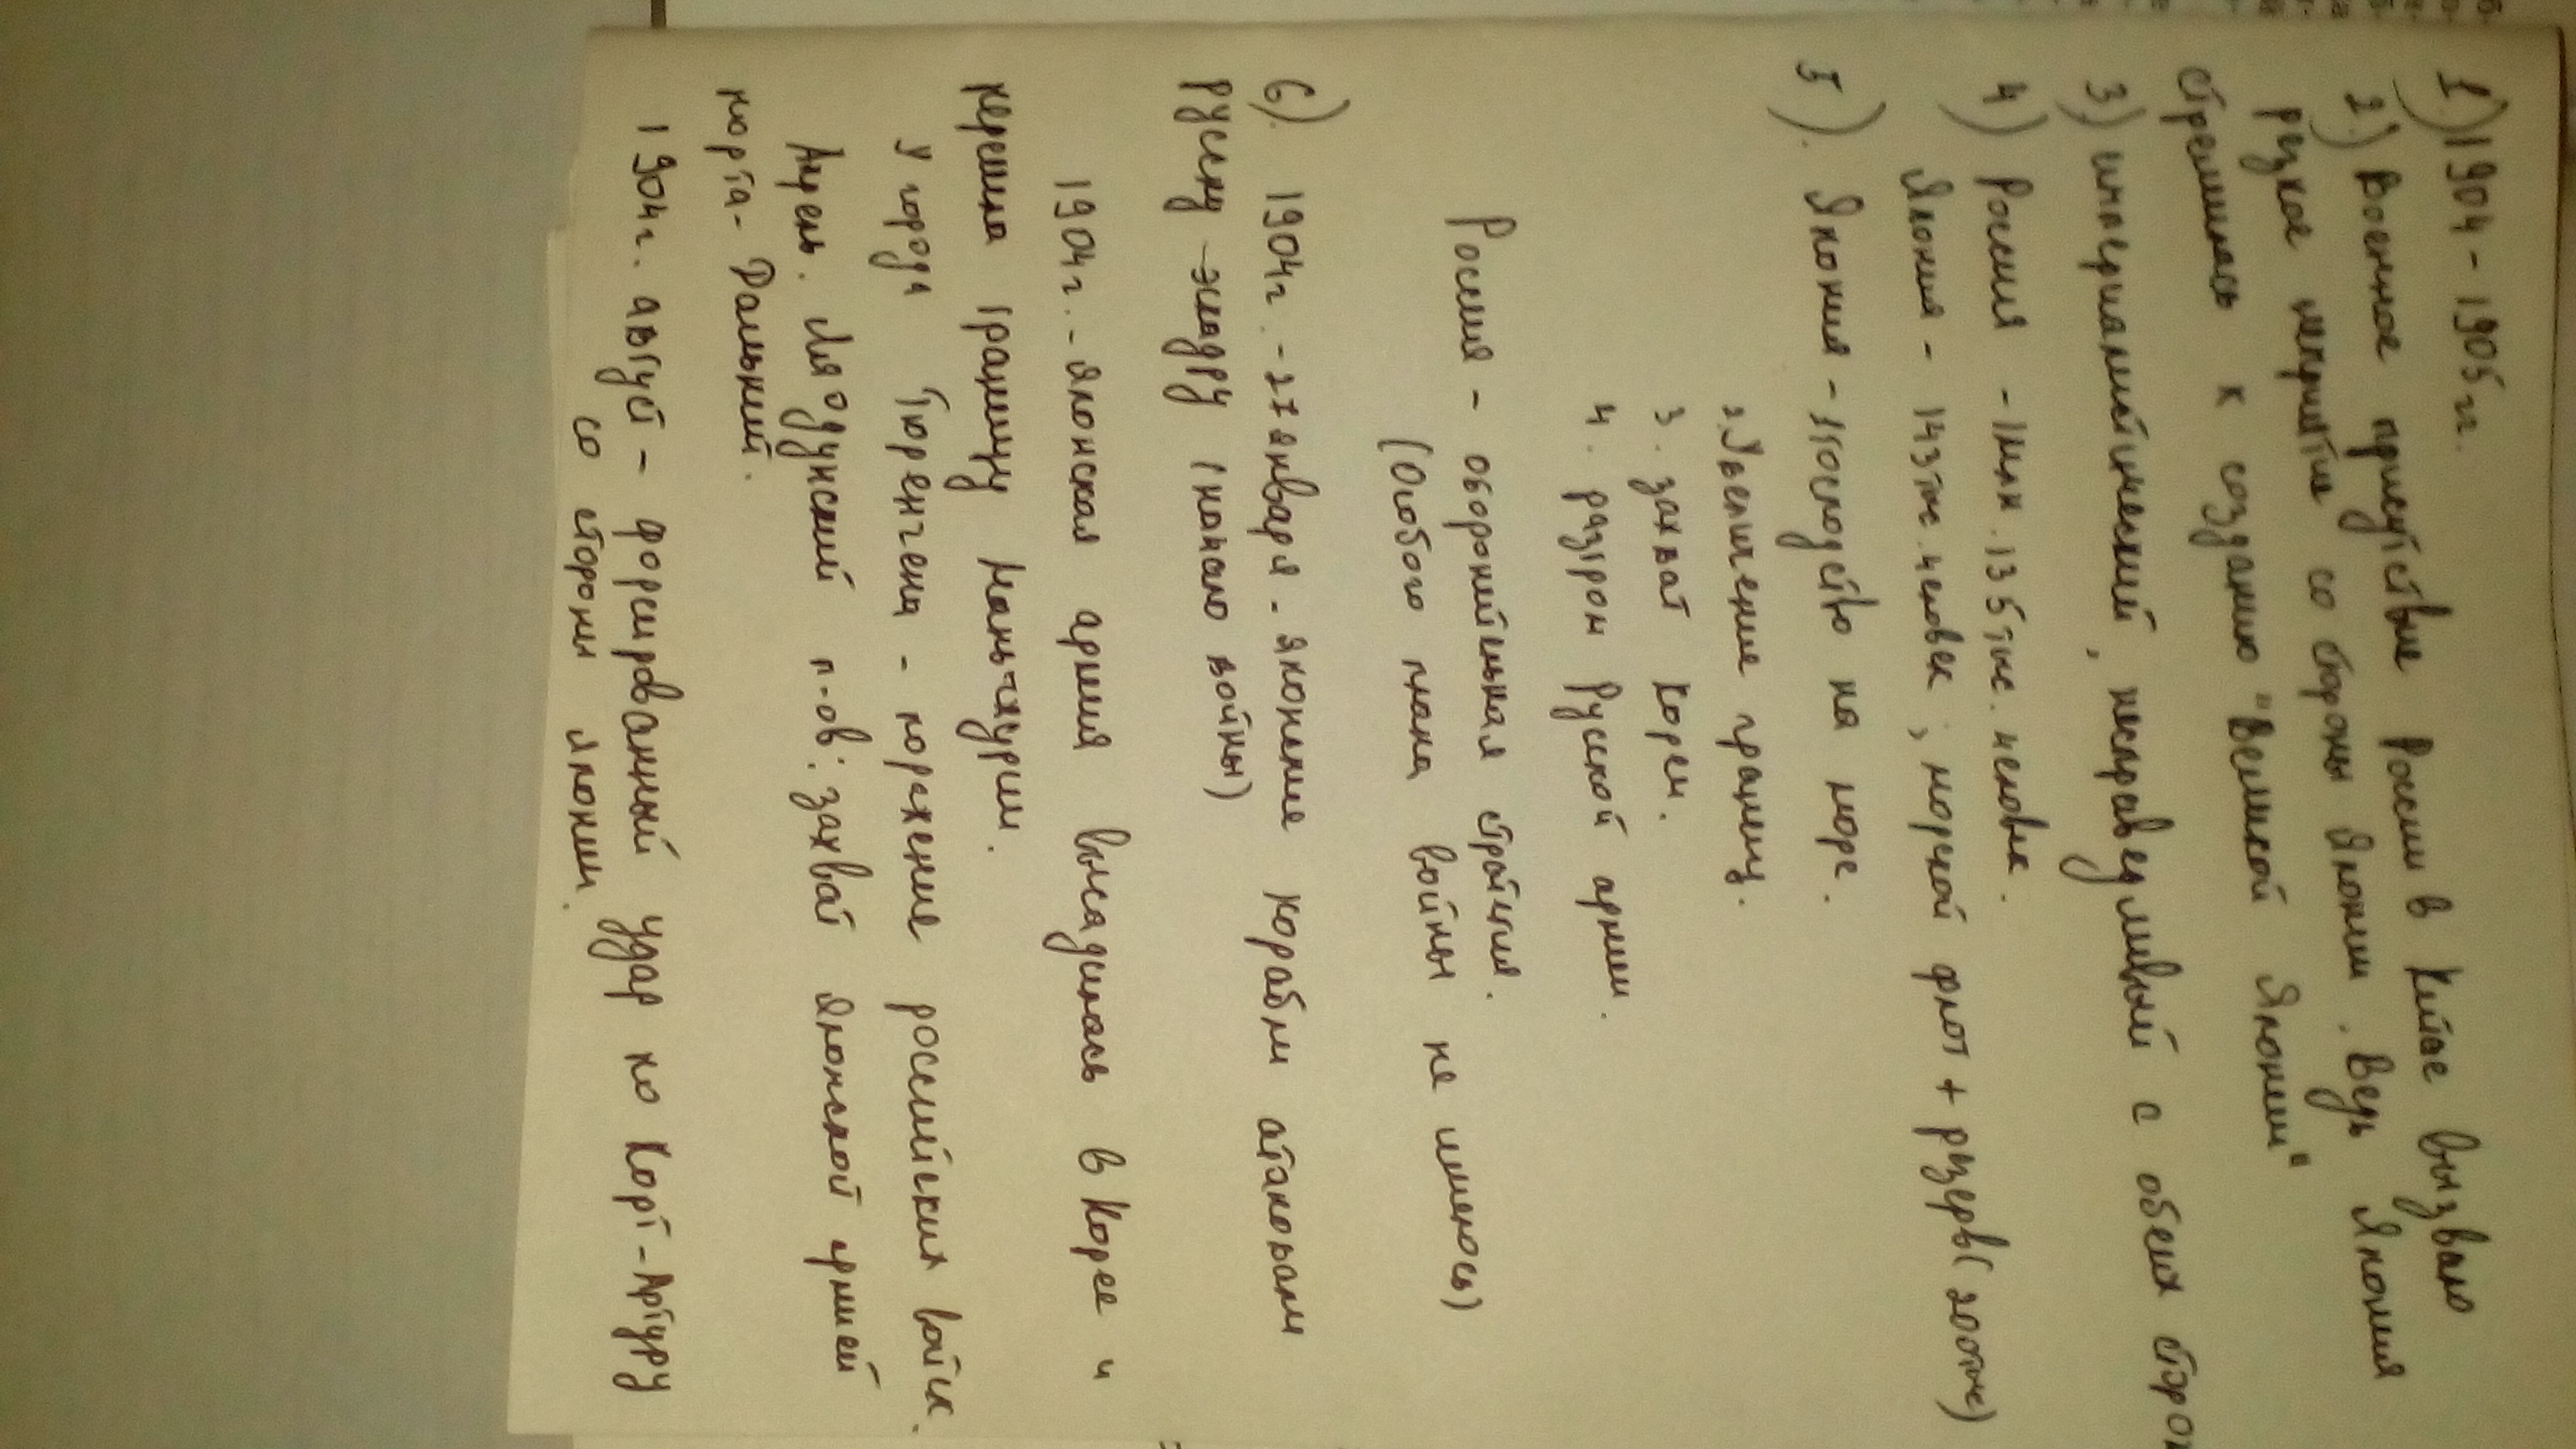 1.) 1904 - 1905 гг.
2.) Военное присутствие России в Китае вызвало
резкое неприятие со стороны Японии. Ведь Япония
стремилась к созданию "Великой Японии"
3) империалистический, несправедливый с обеих сторон
4) Россия - 1 млн. 135 тыс. человек.
Япония - 143 тыс. человек, морской флот + резерв (200 тыс)
5). Япония - 1 господство на море.
2. Увеличение границ.
3. захват Кореи.
4. разгром Русской армии.
Россия - оборонительная стратегия.
(Особого плана войны не имелось)
6). 1904г. - 27 января - японские корабли атаковали
русскую эскадру (начало войны)
1904г. - японская армия высадилась в Корее и
перешла границу Маньчжурии.
У города Тюренчена - поражение российских войск.
Апрель. Ляодунский п-ов: захват японской армией
порта - Дальний.
1904г. август - форсированный удар по Порт-Артуру
со стороны Японии.